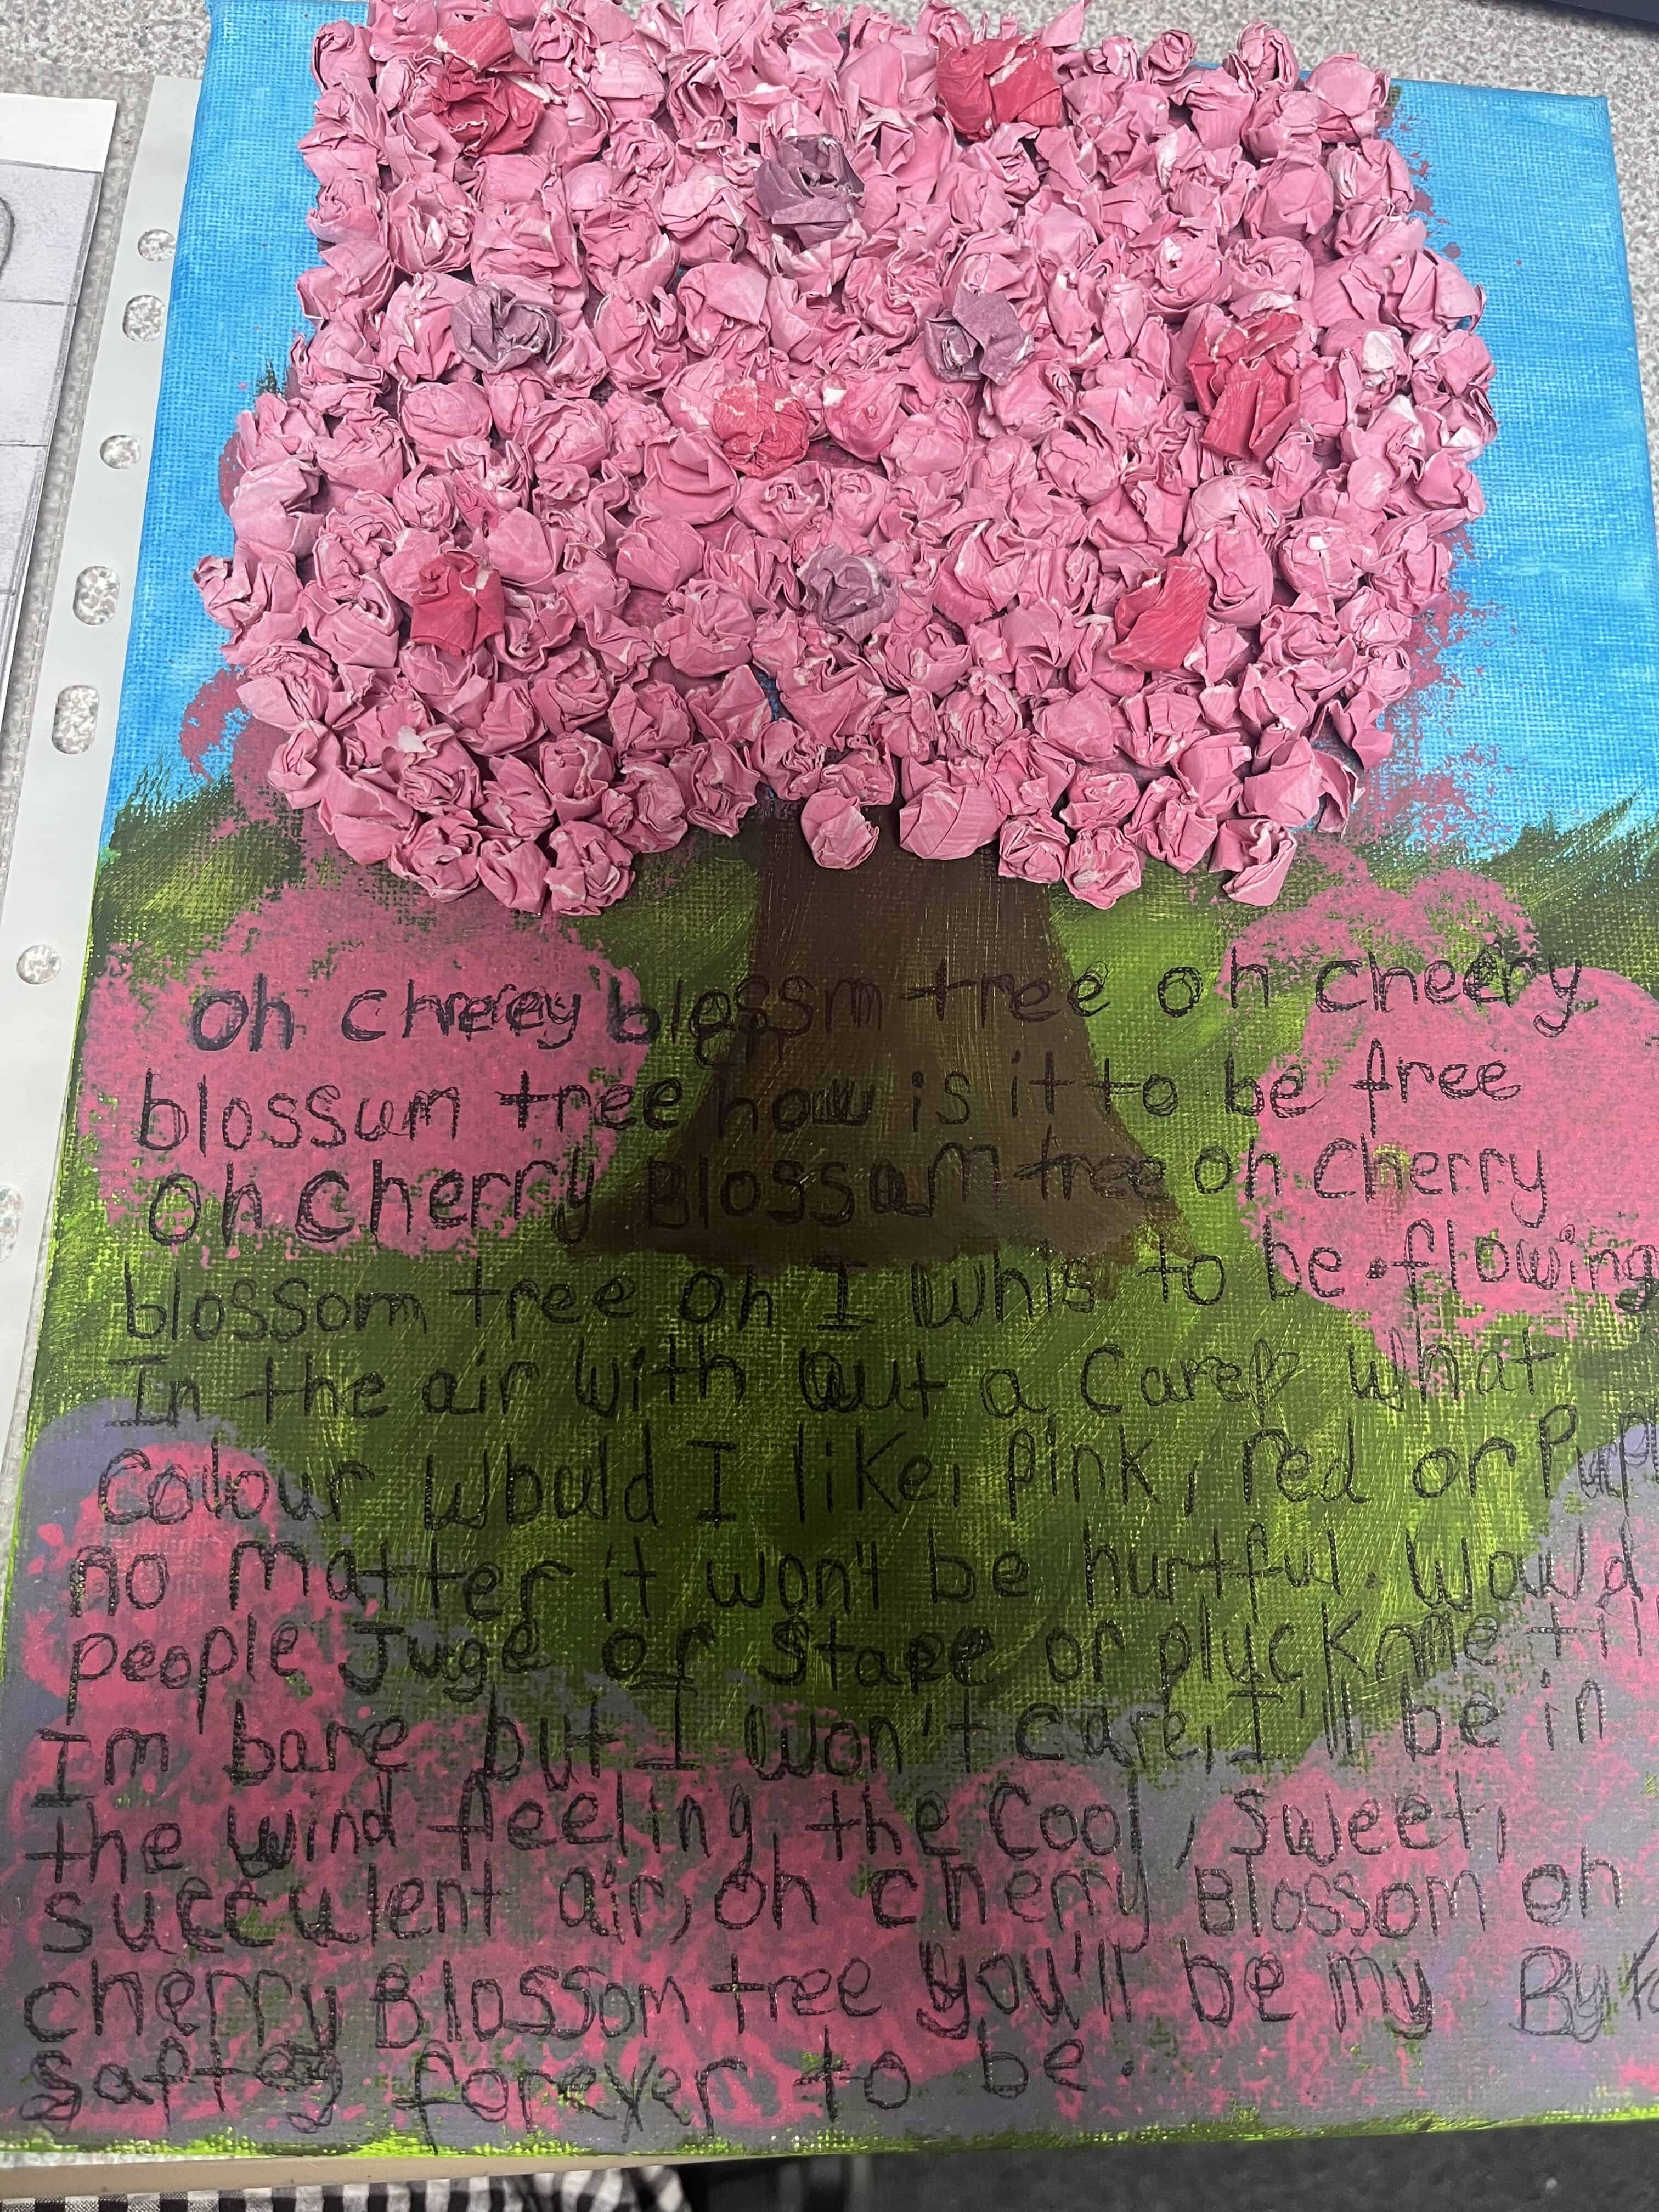 Oh cheery blossm tree oh cheery
blossum tree how is it to be free
Oh Cherry Blossom tree oh Cherry
blossom tree oh I whis to be. flowing
In the air with out a Care what
Colour Would I like, Pink, red or
no matter it won't be hurtful. Would
people Juge or Stare or pluck me
Im bare but I won't care, I'll be in
the wind feeling, the Cool, Sweet,
succulent air, oh cherry Blossom oh
cherry Blossom tree you'll be my By
saftey forever to be.